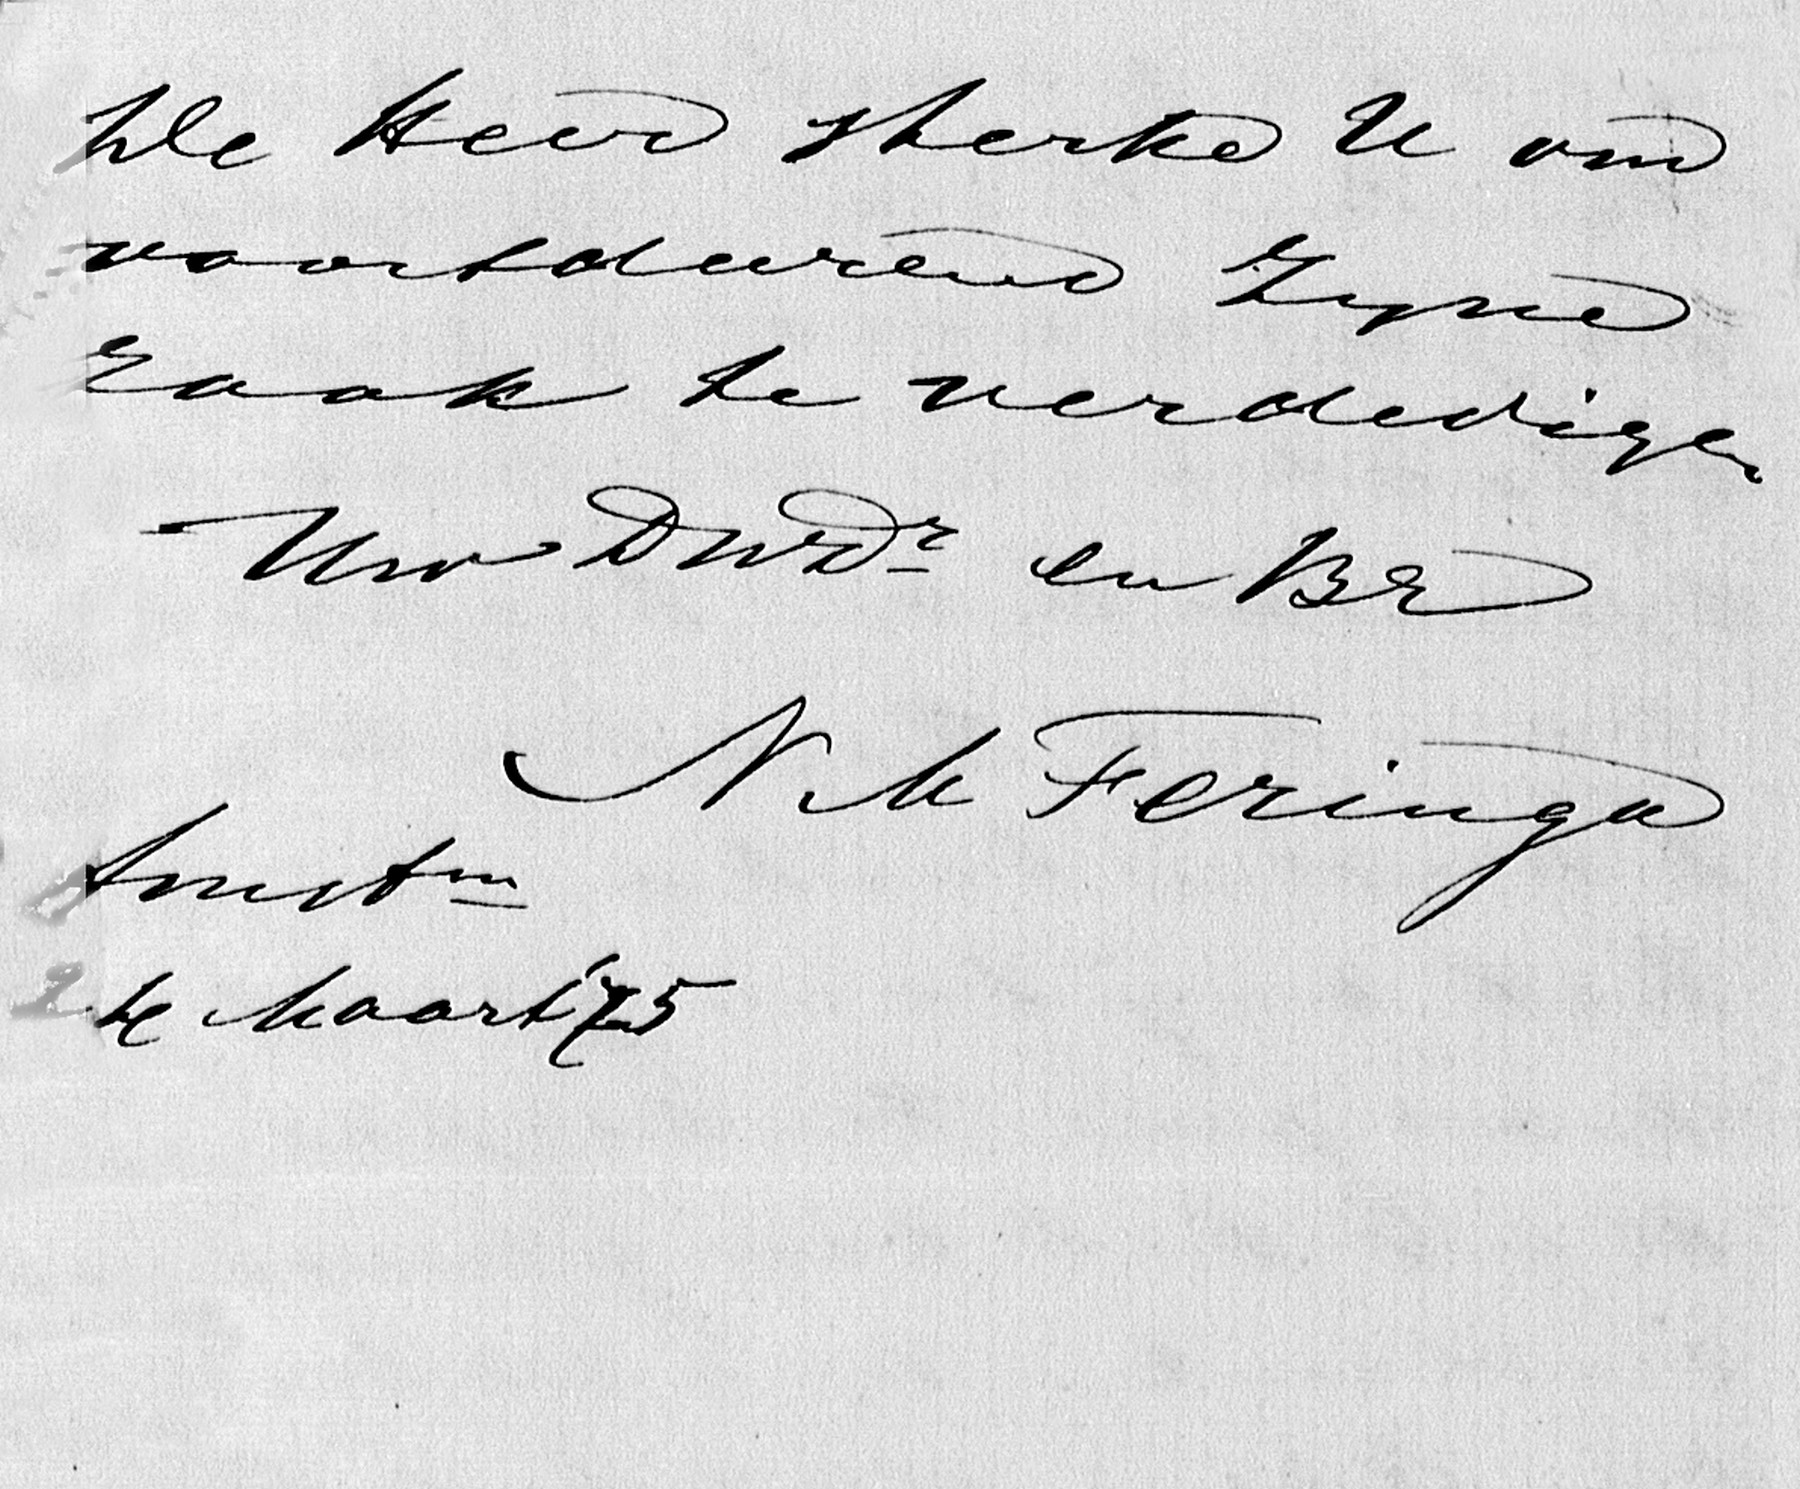 De Heer sterke U om
voortdurend Zyne
zaak te verdedigen
Uw DWDr en Br
N M Feringa
Amstm
2 Maart 75